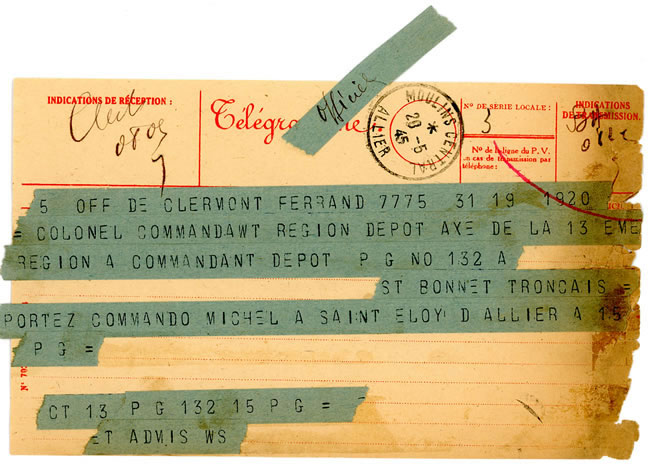 Officiel
INDICATIONS DE RÉCEPTION :
Télégramme
N° DE SÉRIE LOCALE :
3
INDICATIONS
DE TRANSMISSION.
MOULINS CENTRAL
*
20-5
45
ALLIER
N° de la ligne du P. V.
en cas de transmission par
téléphone :
5 OFF DE CLERMONT FERRAND 7775 31 19 1920
= COLONEL COMMANDAWT REGION DEPOT AXE DE LA 13 EME
REGION A COMMANDANT DEPOT P G NO 132 A
ST BONNET TRONCAIS =
PORTEZ COMMANDO MICHEL A SAINT ELOY D ALLIER A 15
P G =
CT 13 P G 132 15 P G =
ET ADMIS WS